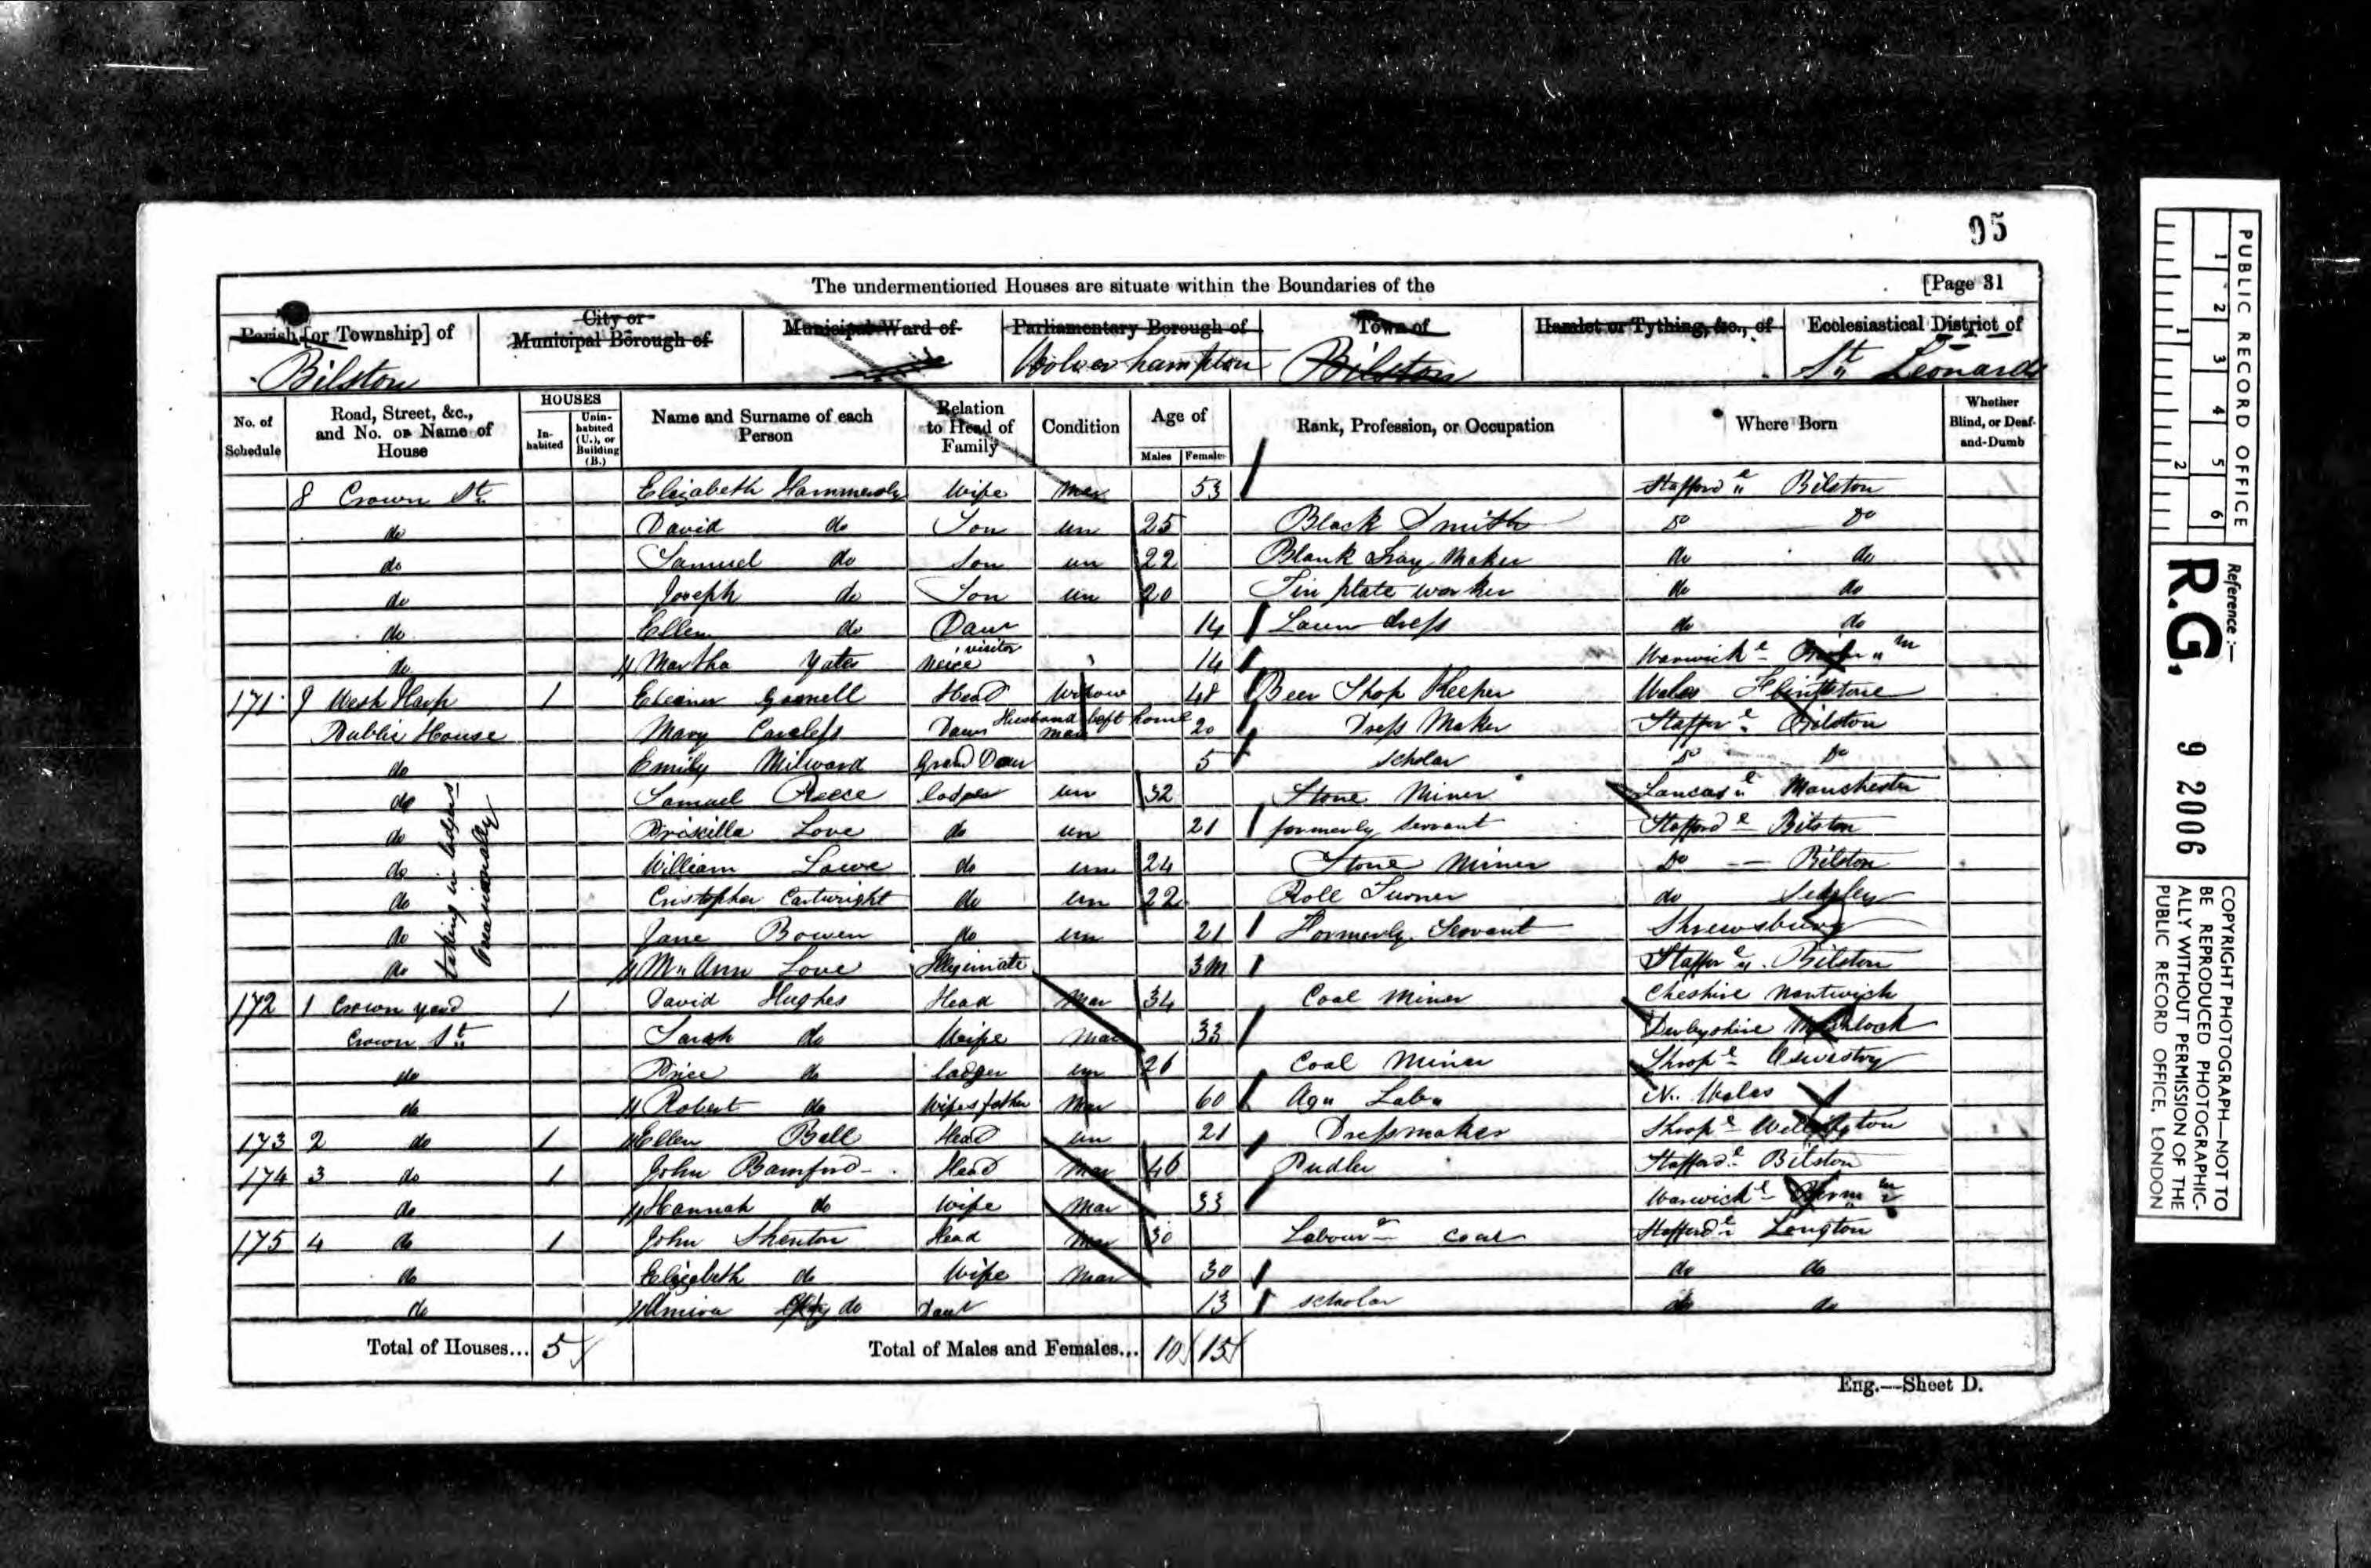 95
The undermentioned Houses are situate within the Boundaries of the [Page 31
Parish [or Township] of City or Municipal Borough of Municipal Ward of Parliamentary Borough of Town of Hamlet or Tything, &c., of Ecclesiastical District of
Bilston Wolverhampton Bilston St Leonards
No. of Schedule Road, Street, &c., and No. or Name of House HOUSES Inhabited Uninhabited (U.), or Building (B.) Name and Surname of each Person Relation to Head of Family Condition Age of Males Females Rank, Profession, or Occupation Where Born Whether Blind, or Deaf-and-Dumb
8 Crown St Elizabeth Hammersly Wife Mar 53 Stafford Bilston
do David do Son un 25 Black Smith Do Do
do Samuel do Son un 22 Blank Tray Maker do do
do Joseph do Son un 20 Tin plate worker do do
do Ellen do Daur 14 Laundress do do
do Martha Yates Neice visitor 14 Warwick
171 9 Welsh Harp 1 Eleanor Head Widow 48 Beer Shop Keeper Wales
Public House Mary Careless Daur Husband left home mar 20 Dress Maker Staffor Bilston
do Emily Milward Grand Daur 5 scholar Do Do
do Samuel Reece lodger un 32 Stone Miner Lancas Manchester
do Priscilla Love do un 21 formerly servant Stafford Bilston
do William Lowe do un 24 Stone Miner Do — Bilston
do Cristopher Cartwright do un 22 Roll Turner do Sedgley
do Jane Bowen do un 21 Formerly Servant Shrewsbury
do M Ann Love Illigimate 3m Staffor Bilston
taking in lodgers occasionally
172 1 Crown yard 1 David Hughes Head Mar 34 Coal Miner Cheshire Nantwich
Crown St Sarah do Wife Mar 33 Derbyshire
do Price do lodger un 26 Coal Miner Shrop Oswestry
do Robert do Wifes father Mar 60 Ag Lab N. Wales
173 2 do 1 Ellen Bell Head un 21 Dressmaker Shrop Wellington
174 3 do 1 John Bamford Head Mar 46 Pudler Stafford Bilston
do Hannah do Wife Mar 33 Warwick Birm
175 4 do 1 John Shenton Head Mar 30 Labour Coal Stafford Longton
do Elizabeth do Wife Mar 30 do do
do do Daur 13 scholar do do
Total of Houses... 5 Total of Males and Females... 10 15
Eng.—Sheet D.
PUBLIC RECORD OFFICE
1 2 3 4 5 6
1 2
Reference :—
R.G. 9 2006
COPYRIGHT PHOTOGRAPH—NOT TO BE REPRODUCED PHOTOGRAPHICALLY WITHOUT PERMISSION OF THE PUBLIC RECORD OFFICE, LONDON